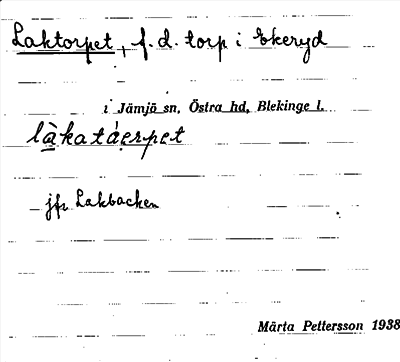 Laktorpet, f. d. torp i Ekeryd
i Jämjö sn, Östra hd, Blekinge l.
làkatáerpet
jfr Lakbacken
Märta Pettersson 1938